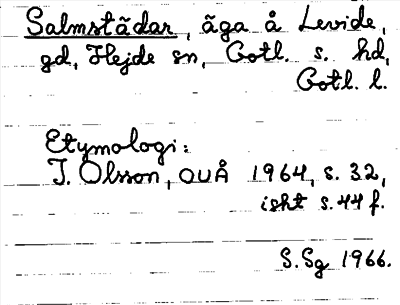 Salmstädar, äga å Levide,
gd, Hejde sn, Gotl. s. hd,
Gotl. l.
Etymologi:
I. Olsson, OUÅ 1964, s. 32,
isht s. 44 f.
S.Sg 1966.